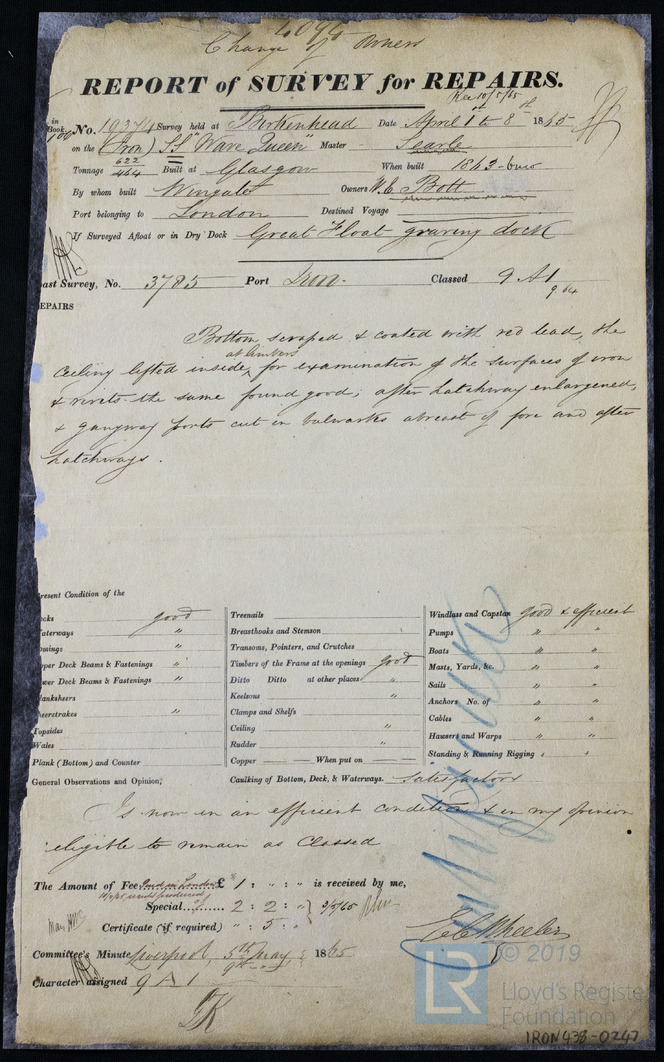 4094
Change of Owners
REPORT of SURVEY for REPAIRS.
Rec 10/5/65
in Book No. 19374 Survey held at Birkenhead Date April 1st to 8th 1865
on the (Iron) SS "Wave Queen" Master Searle
Tonnage 622 464 Built at Glasgow When built 1863
By whom built Wingate Owners W.C. Bott
Port belonging to London Destined Voyage
If Surveyed Afloat or in Dry Dock Great Float graving dock
ast Survey, No. 3785 Port Iron. Classed 9 A1
9,64
EPAIRS
Bottom scraped & coated with red lead, the
at limbers
Ceiling lifted inside for examination of the surfaces of iron
& rivits the same found good; after hatchway enlargened,
& gangway ports cut in bulwarks abreast of fore and after
hatchways.
resent Condition of the
ecks good
aterways "
omings "
pper Deck Beams & Fastenings "
ower Deck Beams & Fastenings "
lanksheers
heerstrakes "
Topsides
Wales
Plank (Bottom) and Counter
General Observations and Opinion,
Treenails
Breasthooks and Stemson
Transoms, Pointers, and Crutches
Timbers of the Frame at the openings good
Ditto Ditto at other places "
Keelsons "
Clamps and Shelfs
Ceiling "
Rudder "
Copper When put on
Caulking of Bottom, Deck, & Waterways. Satisfactory
Windlass and Capstan good & efficient
Pumps " "
Boats " "
Masts, Yards, &c. " "
Sails " "
Anchors No. of " "
Cables " "
Hawsers and Warps " "
Standing & Running Rigging " "
Is now in an efficient condition & in my opinion
eligible to remain as Classed
The Amount of Fee Paid in London £ 1 : " : " is received by me,
Special 2 : 2 : " 9/5/65
Certificate (if required) " : 5 : "
E C Wheeler
Committee's Minute Liverpool, 5th May 1865
9th "
Character assigned 9 A 1
© 2019
LR
Lloyd's Register
Foundation
IRON438-0247